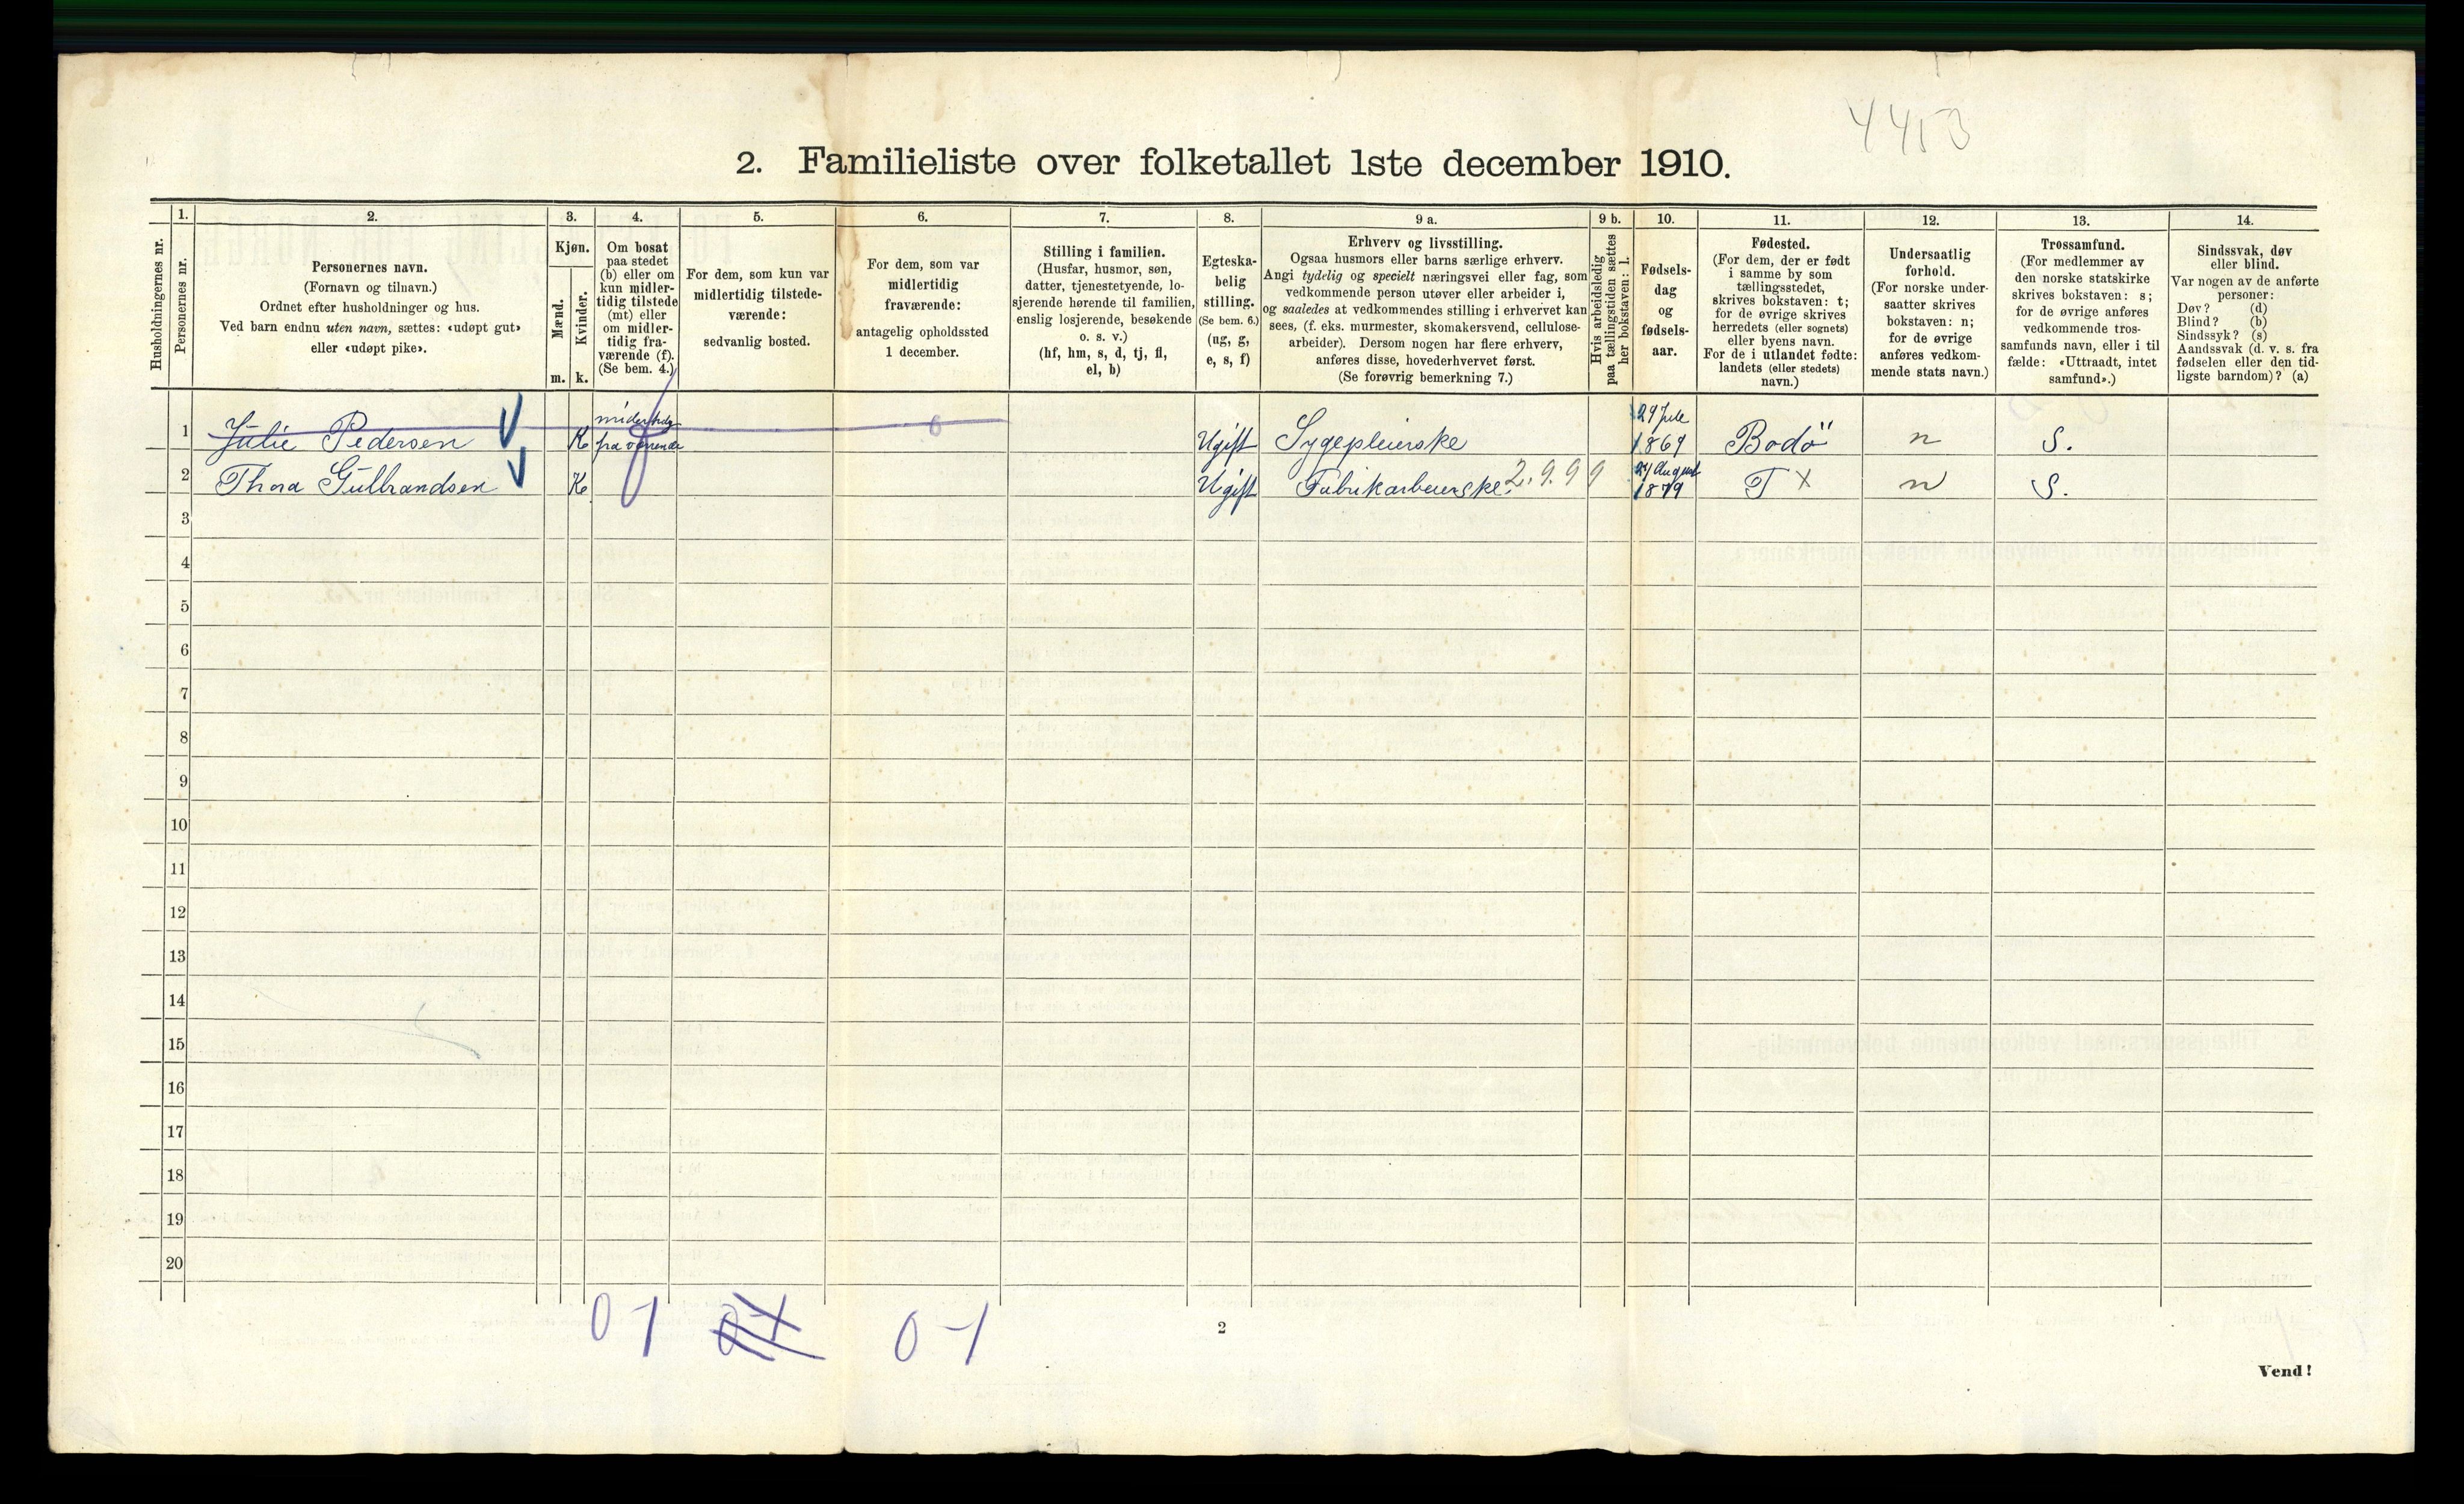 4453
2. Familieliste over folketallet 1ste december 1910.
Husholdningernes nr.
1.
Personernes nr.
2.
Personernes navn.
(Fornavn og tilnavn.)
Ordnet efter husholdninger og hus.
Ved barn endnu uten navn, sættes: «udøpt gut»
eller «udøpt pike».
3.
Kjøn.
Mænd.
Kvinder.
m. k.
4.
Om bosat
paa stedet
(b) eller om
kun midler-
tidig tilstede
(mt) eller
om midler-
tidig fra-
værende (f).
(Se bem. 4.)
5.
For dem, som kun var
midlertidig tilstede-
værende:
sedvanlig bosted.
6.
For dem, som var
midlertidig
fraværende:
antagelig opholdssted
1 december.
7.
Stilling i familien.
(Husfar, husmor, søn,
datter, tjenestetyende, lo-
sjerende hørende til familien,
enslig losjerende, besøkende
o. s. v.)
(hf, hm, s, d, tj, fl,
el, b)
8.
Egteska-
belig
stilling.
(Se bem. 6.)
(ug, g,
e, s, f)
9 a.
Erhverv og livsstilling.
Ogsaa husmors eller barns særlige erhverv.
Angi tydelig og specielt næringsvei eller fag, som
vedkommende person utøver eller arbeider i,
og saaledes at vedkommendes stilling i erhvervet kan
sees, (f. eks. murmester, skomakersvend, cellulose-
arbeider). Dersom nogen har flere erhverv,
anføres disse, hovederhvervet først.
(Se forøvrig bemerkning 7.)
9 b.
Hvis arbeidsledig
paa tællingstiden sættes
her bokstaven: l.
10.
Fødsels-
dag
og
fødsels-
aar.
11.
Fødested.
(For dem, der er født
i samme by som
tællingsstedet,
skrives bokstaven: t;
for de øvrige skrives
herredets (eller sognets)
eller byens navn.
For de i utlandet fødte:
landets (eller stedets)
navn.)
12.
Undersaatlig
forhold.
(For norske under-
saatter skrives
bokstaven: n;
for de øvrige
anføres vedkom-
mende stats navn.)
13.
Trossamfund.
(For medlemmer av
den norske statskirke
skrives bokstaven: s;
for de øvrige anføres
vedkommende tros-
samfunds navn, eller i til
fælde: «Uttraadt, intet
samfund».)
14.
Sindssvak, døv
eller blind.
Var nogen av de anførte
personer:
Døv? (d)
Blind? (b)
Sindssyk? (s)
Aandssvak (d. v. s. fra
fødselen eller den tid-
ligste barndom)? (a)
1 Julie Pedersen K fraværende 6 Ugift Sygepleierske 29 Jule 1869 Bodö n S.
2 Thora Gulbrandsen K Ugift Fabrikarbeierske. 2.9.99 24 August 1879 T X n S.
3
4
5
6
7
8
9
10
11
12
13
14
15
16
17
18
19
20
0-1 0-1 0-1
2
Vend!